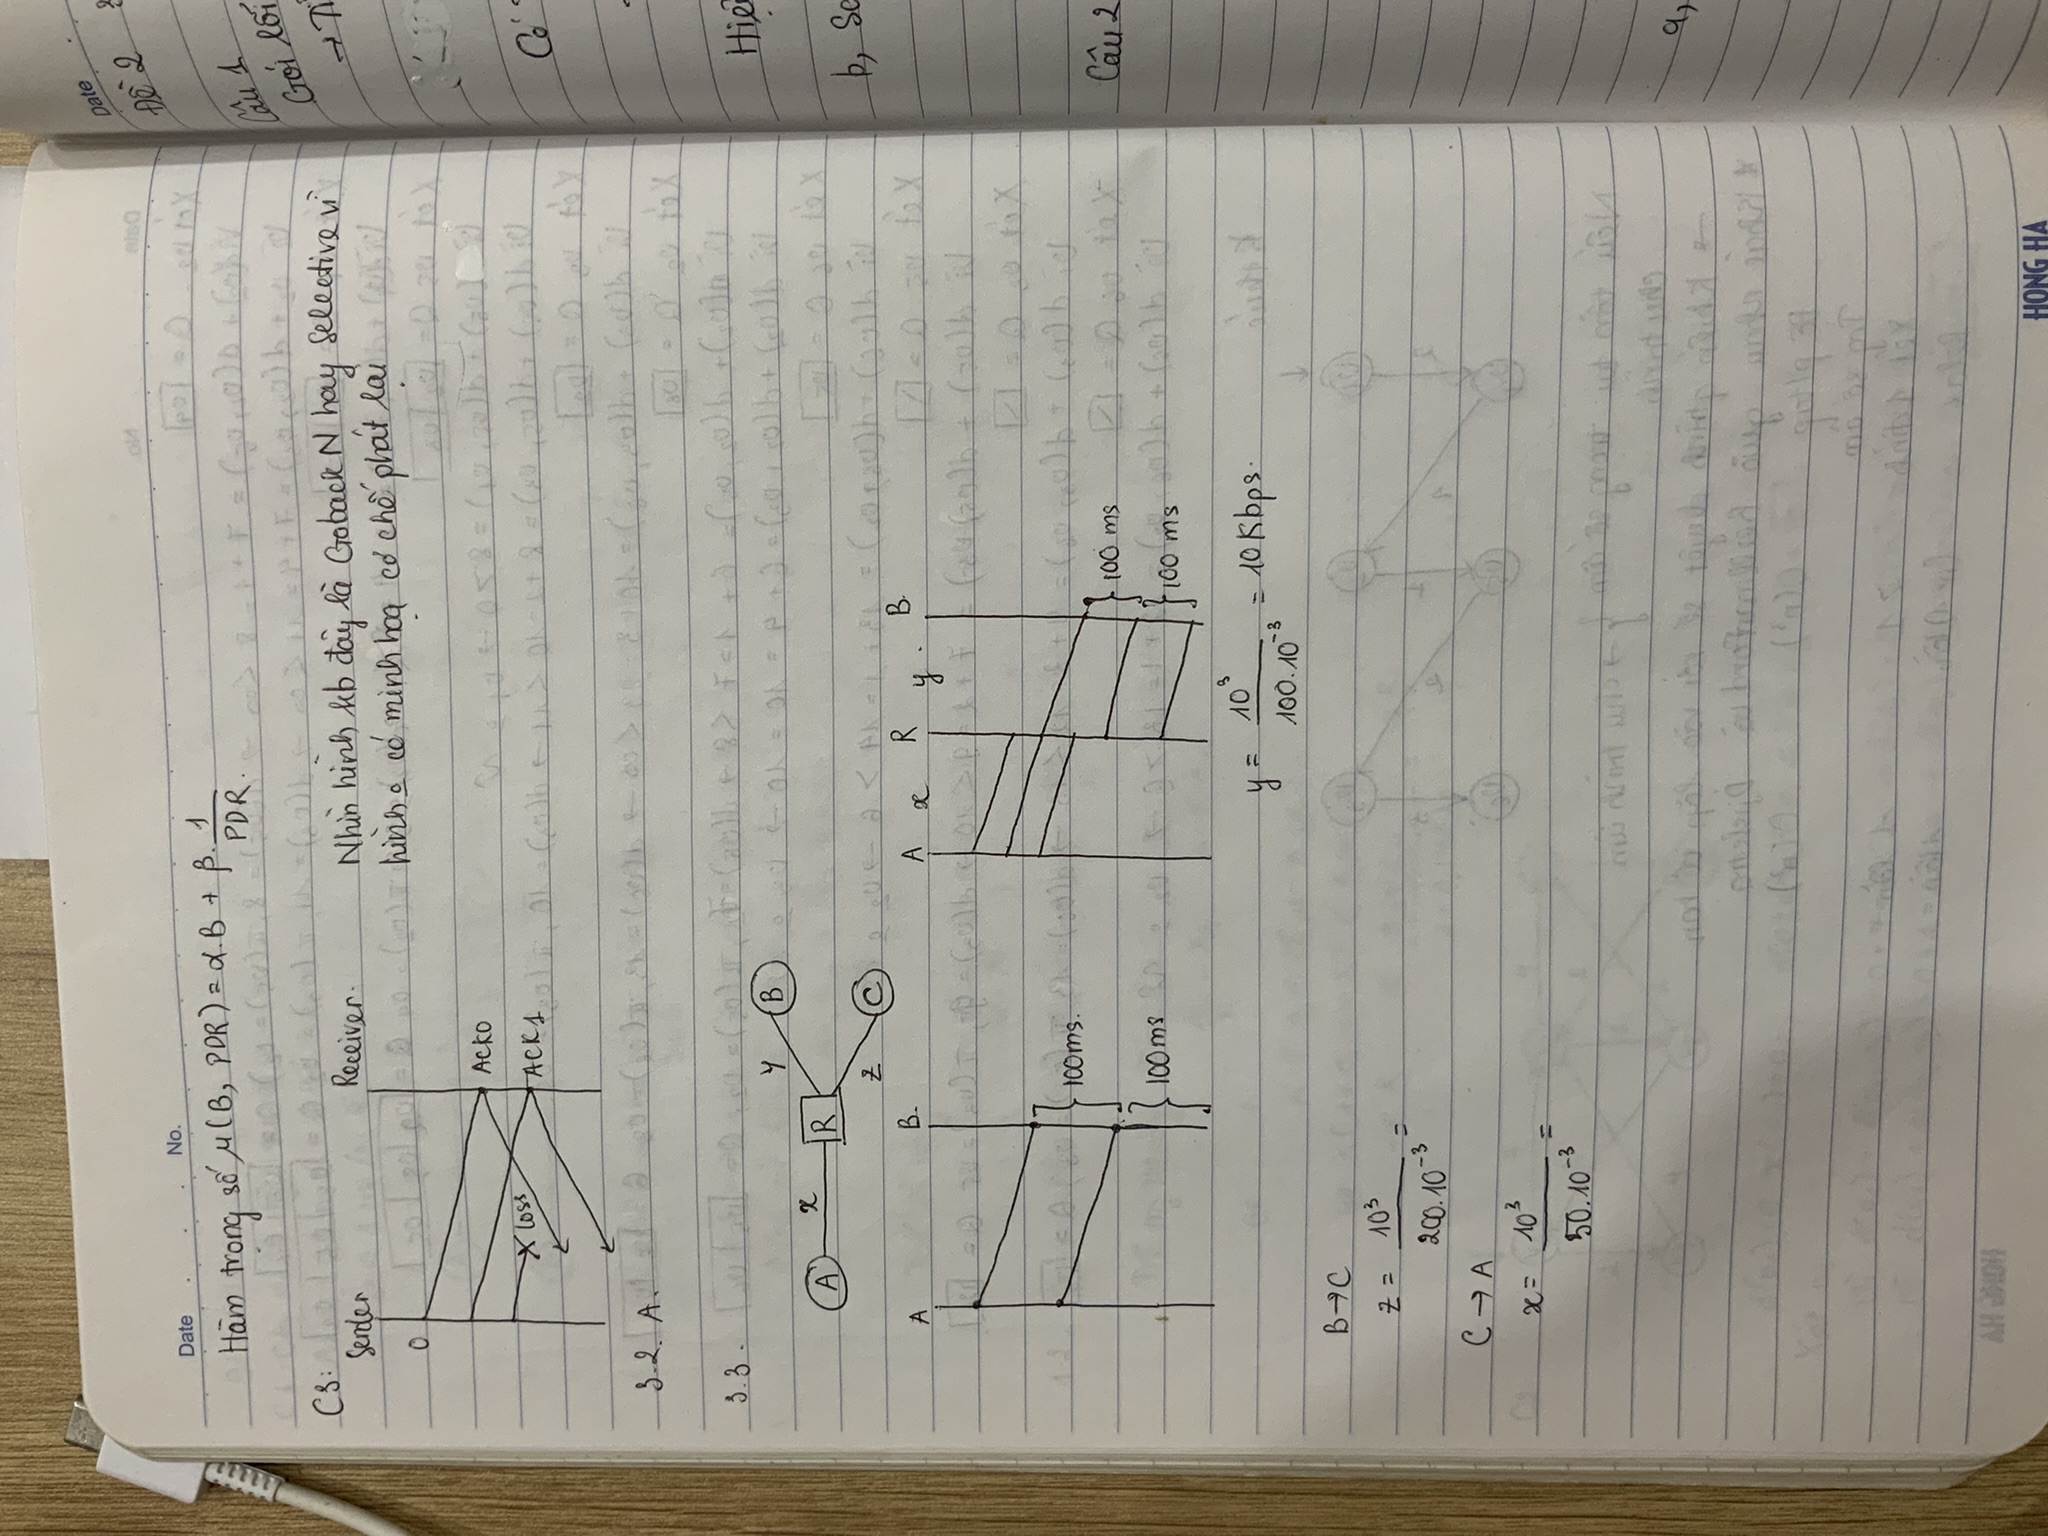 Date No.
Hàm trọng số μ(B, PDR) = α.B + β. 1/PDR.
C3:
Sender Receiver.
Nhìn hình kb đây là Goback N hay Selective vì
hình o có minh hoạ cơ chế phát lại
0
ACK0
X loss
ACK1
3.2. A.
3.3.
A x R y B
z C
A B.
100ms.
100ms
A x R y. B.
100 ms
100 ms
y = 10³ / 100.10⁻³ = 10Kbps.
B → C
z = 10³ / 200.10⁻³ =
C → A
x = 10³ / 50.10⁻³ =
HONG HA
Date
Đề 2
Câu 1
Gói lỗi
Có
Hiệ
b, Se
Câu 2
a,